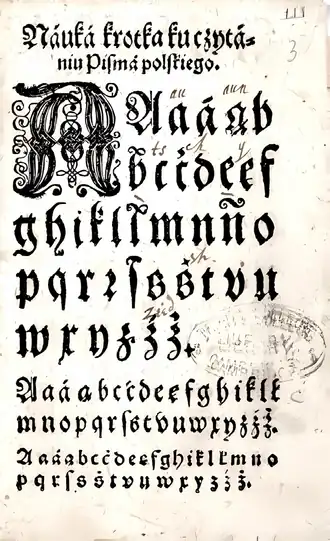 Náuká krotka ku czytá-
niu Pismá polskiego.
A a á ą b
b́ c ć d e ę f
g h i k l ł m n ń o
p q r ꝛ ſ s ś t v u
w x y z ź ż.
A a á ą b c ć d e ę f g h i k l ł
m n o p q r ſ s t v u w x y z ź ż.
A a á ą b c ć d e ę f g h i k l ł m n o
p q r ſ s ś t v u w x y z ź ż.